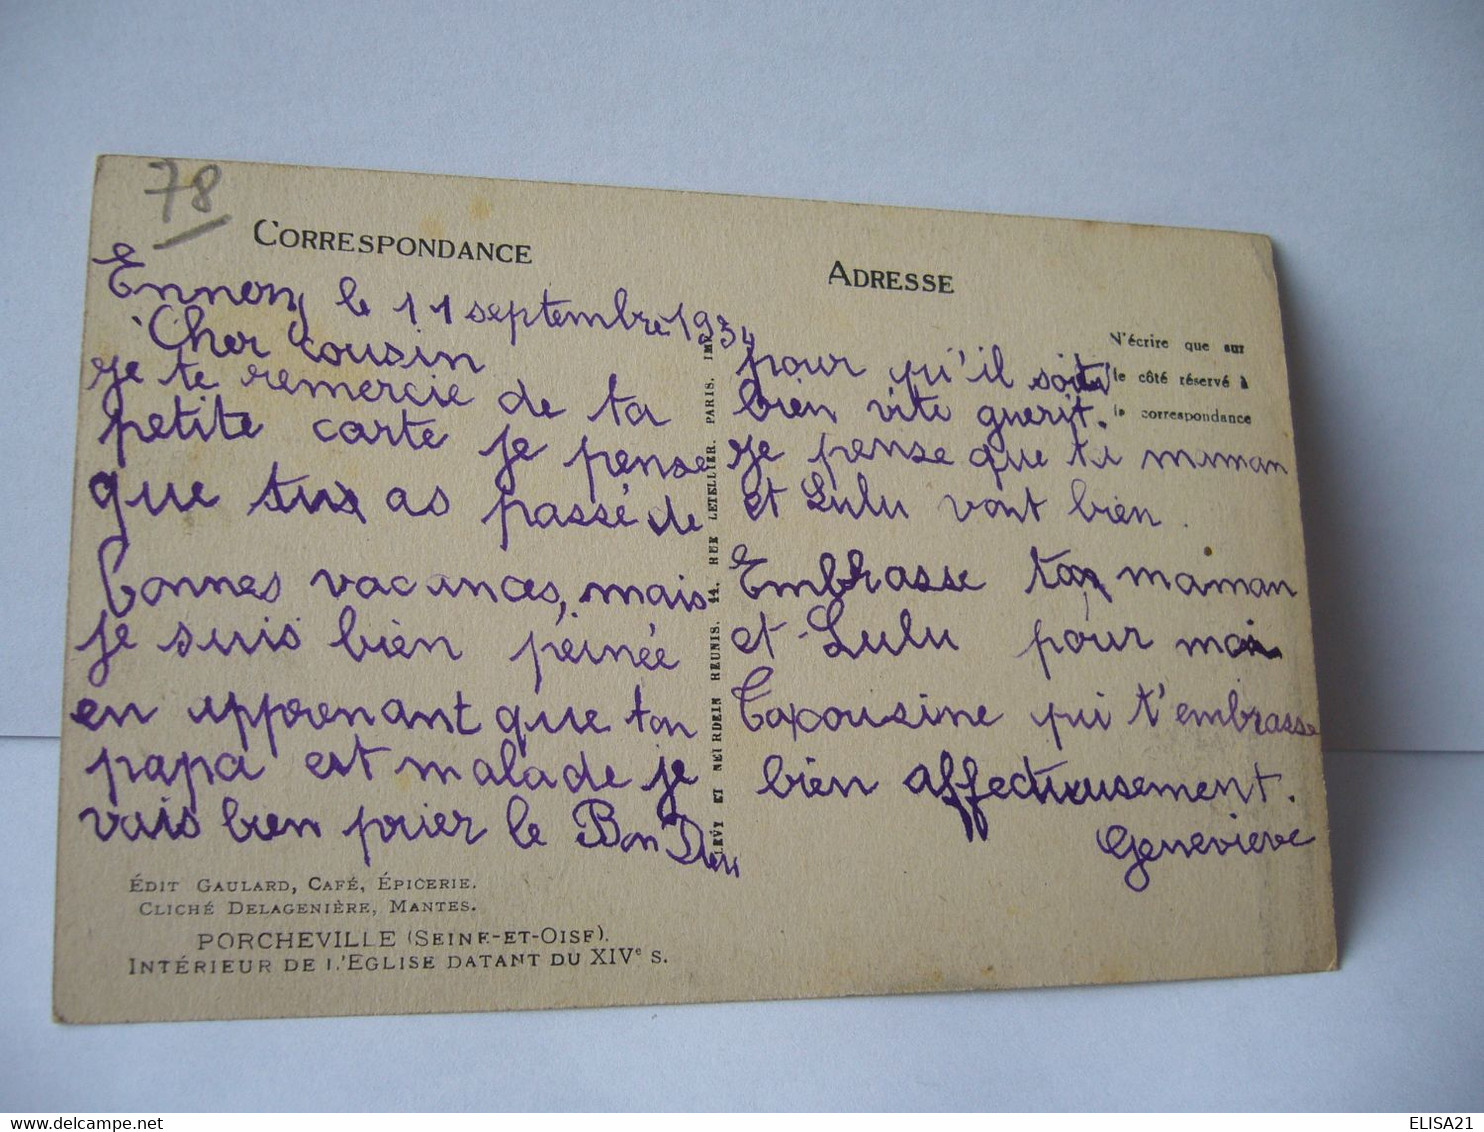 78
CORRESPONDANCE
Ennery le 11 septembre 1934
Cher cousin
je te remercie de ta
petite carte je pense
que tu as passé de
bonnes vacances, mais
je suis bien peinée
en apprenant que ton
papa est malade je
vais bien prier le Bon Dieu
EDIT GAULARD, CAFÉ, ÉPICERIE.
CLICHÉ DELAGENIÈRE, MANTES.
PORCHEVILLE (SEINE-ET-OISE).
INTÉRIEUR DE L'EGLISE DATANT DU XIVe S.
LEVY ET NEURDEIN REUNIS, 44, RUE LETELLIER, PARIS. IMP
ADRESSE
N'écrire que sur
le côté réservé à
la correspondance
pour qu'il soit
bien vite guerit.
je pense que ta maman
et Lulu vont bien.
Embrasse ton maman
et Lulu pour moi
Ta cousine qui t'embrasse
bien affectueusement.
Genevieve
ELISA21